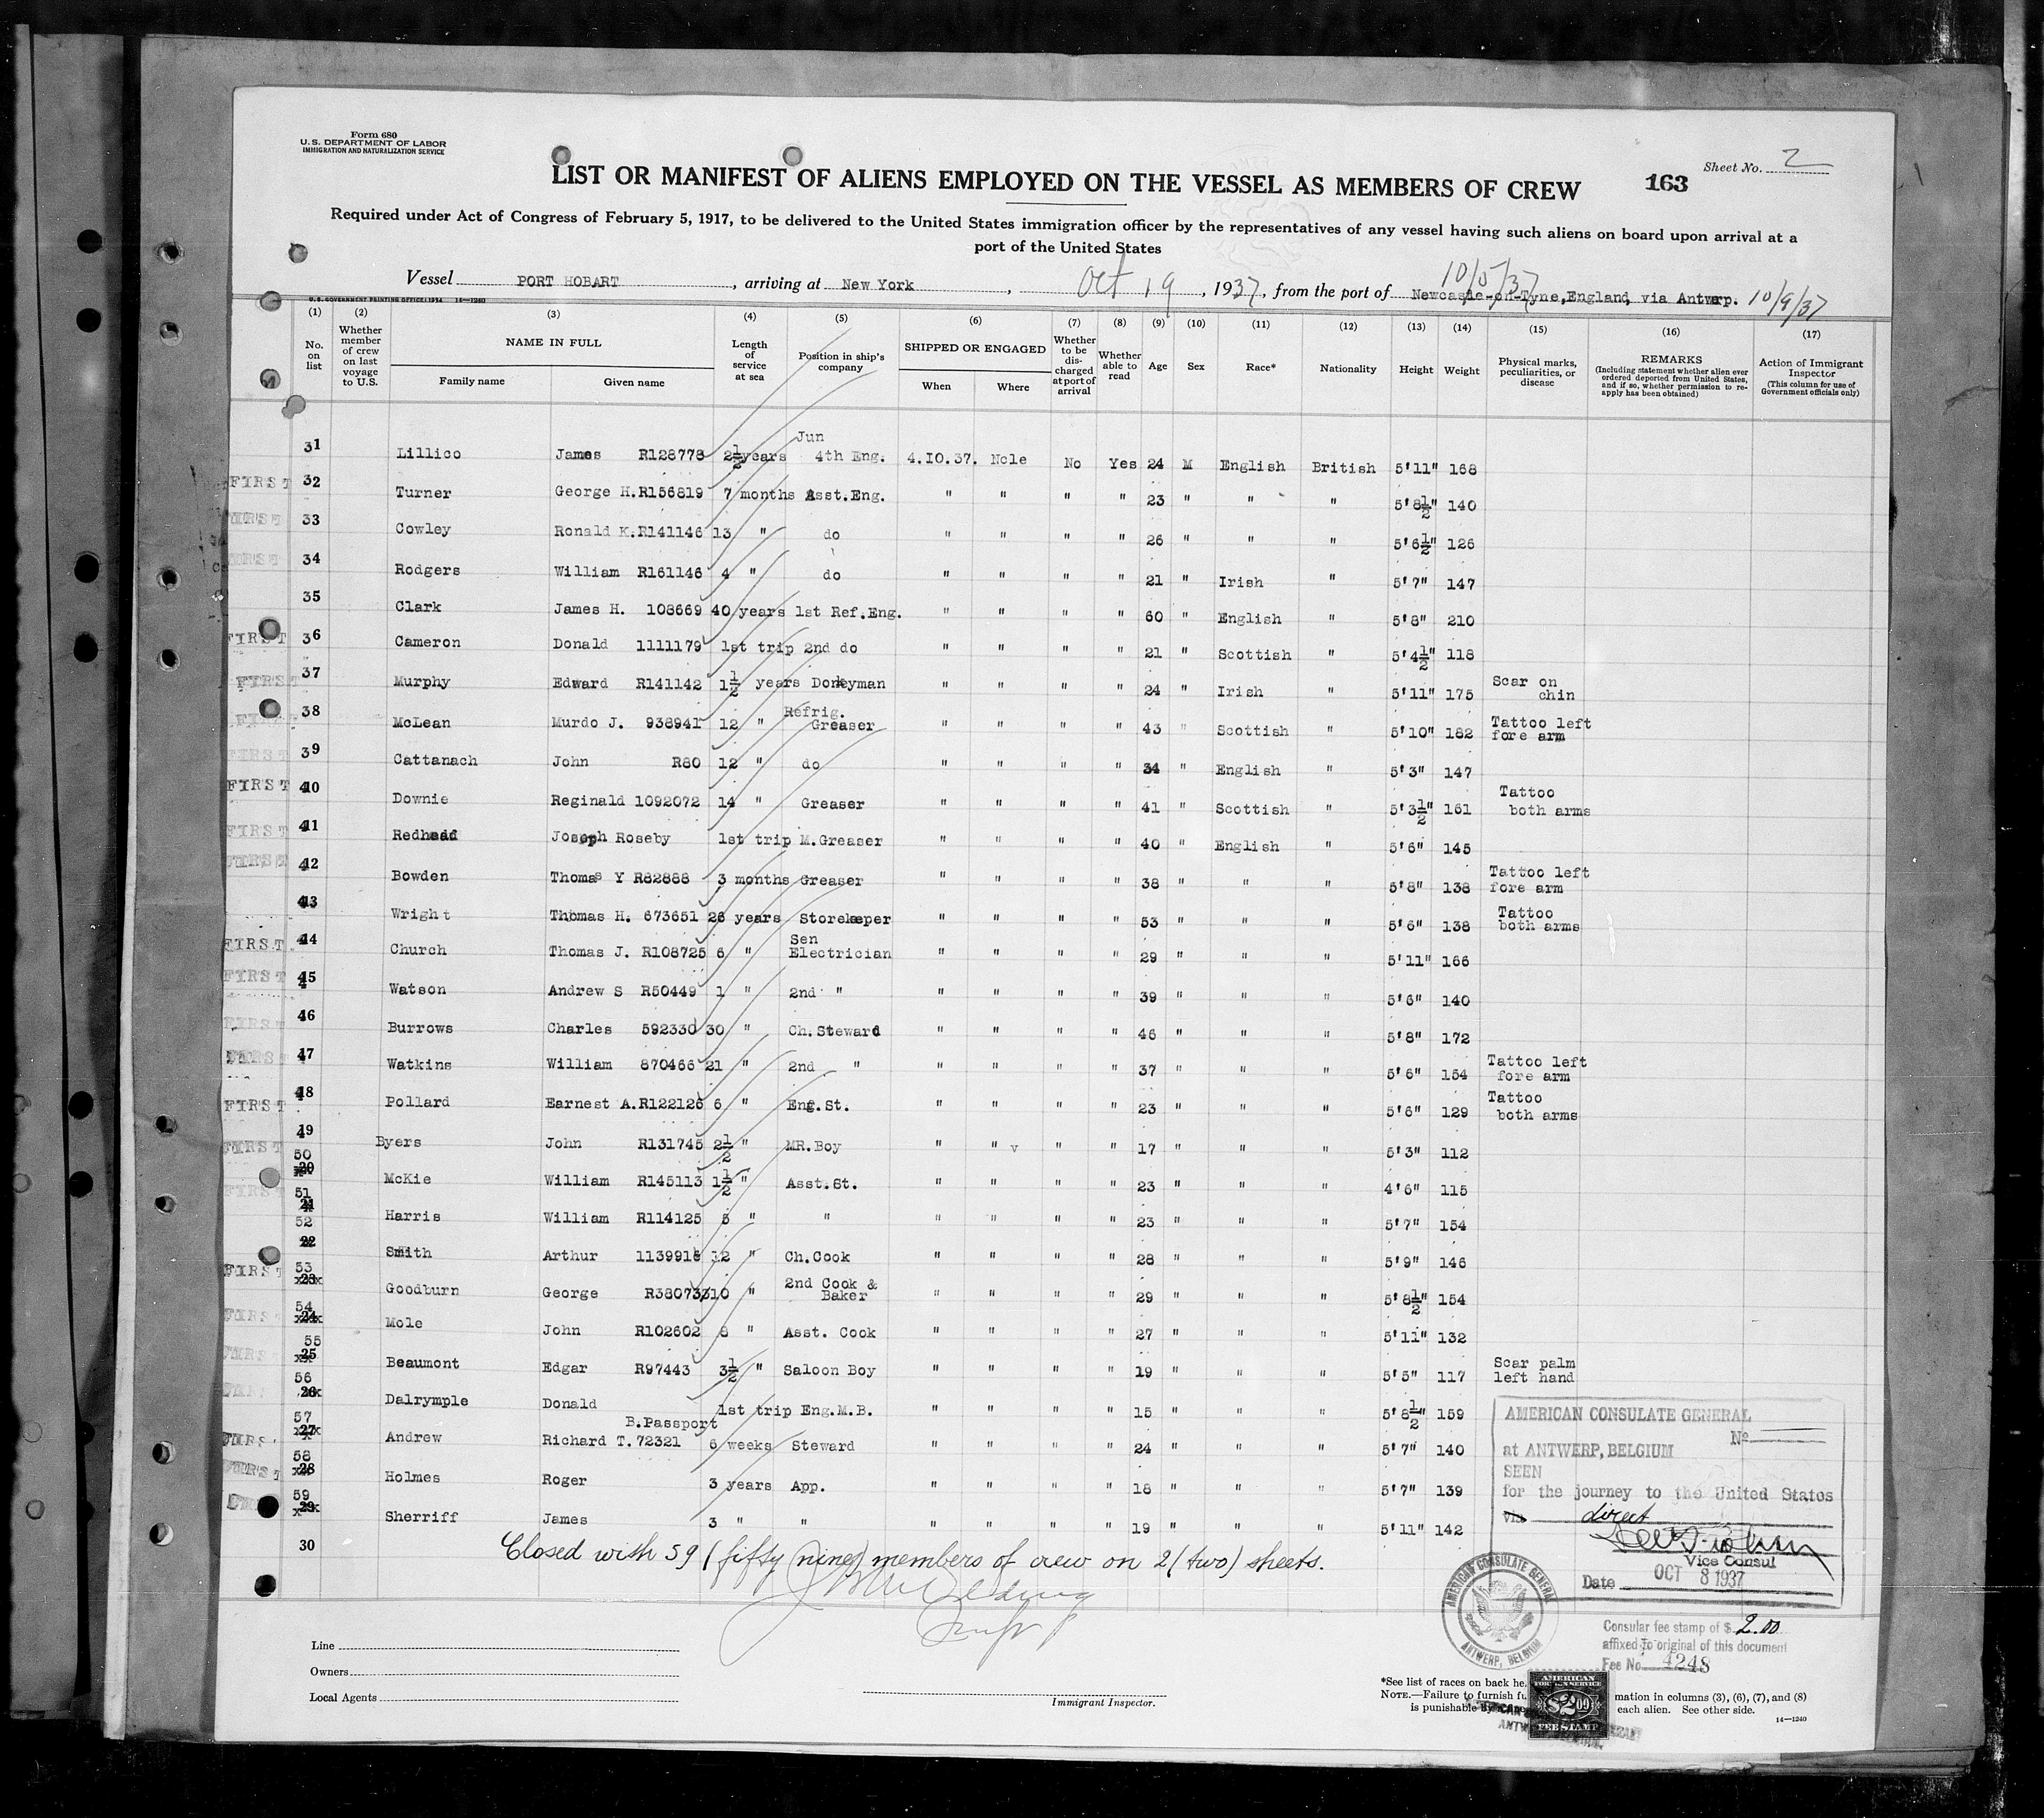 Form 680
U. S. DEPARTMENT OF LABOR
IMMIGRATION AND NATURALIZATION SERVICE
Sheet No. 2
LIST OR MANIFEST OF ALIENS EMPLOYED ON THE VESSEL AS MEMBERS OF CREW 163
Required under Act of Congress of February 5, 1917, to be delivered to the United States immigration officer by the representatives of any vessel having such aliens on board upon arrival at a
port of the United States
10/5/37
Vessel PORT HOBART, arriving at New York, Oct 19, 1937, from the port of Newcastle-on-Tyne, England, via Antwerp. 10/9/37
U. S. GOVERNMENT PRINTING OFFICE: 1934 14—1240
(1) (2) (3) (4) (5) (6) (7) (8) (9) (10) (11) (12) (13) (14) (15) (16) (17)
No. on list
Whether member of crew on last voyage to U.S.
NAME IN FULL
Family name Given name
Length of service at sea
Position in ship's company
SHIPPED OR ENGAGED
When Where
Whether to be discharged at port of arrival
Whether able to read
Age Sex Race* Nationality Height Weight
Physical marks, peculiarities, or disease
REMARKS
(Including statement whether alien ever ordered deported from United States, and if so, whether permission to reapply has been obtained)
Action of Immigrant Inspector
(This column for use of Government officials only)
31 Lillico James R128778 2½ years Jun 4th Eng. 4.10.37. Ncle No Yes 24 M English British 5'11" 168
FIRST 32 Turner George H. R156819 7 months Asst.Eng. " " " " 23 " " " 5'8½" 140
FIRST 33 Cowley Ronald K. R141146 13 " do " " " " 26 " " " 5'6½" 126
FIRST 34 Rodgers William R161146 4 " do " " " " 21 " Irish " 5'7" 147
35 Clark James H. 108669 40 years 1st Ref.Eng. " " " " 60 " English " 5'8" 210
FIRST 36 Cameron Donald 1111179 1st trip 2nd do " " " " 21 " Scottish " 5'4½" 118
FIRST 37 Murphy Edward R141142 1½ years Donkeyman " " " " 24 " Irish " 5'11" 175 Scar on chin
FIRST 38 McLean Murdo J. 938941 12 " Refrig. Greaser " " " " 43 " Scottish " 5'10" 182 Tattoo left fore arm
FIRST 39 Cattanach John R80 12 " do " " " " 34 " English " 5'3" 147
FIRST 40 Downie Reginald 1092072 14 " Greaser " " " " 41 " Scottish " 5'3½" 161 Tattoo both arms
FIRST 41 Redhead Joseph Roseby 1st trip M.Greaser " " " " 40 " English " 5'6" 145
FIRST 42 Bowden Thomas Y R82888 3 months Greaser " " " " 38 " " " 5'8" 138 Tattoo left fore arm
43 Wright Thomas H. 673651 26 years Storekeeper " " " " 53 " " " 5'6" 138 Tattoo both arms
FIRST 44 Church Thomas J. R108725 6 " Sen Electrician " " " " 29 " " " 5'11" 166
FIRST 45 Watson Andrew S R50449 1 " 2nd " " " " " 39 " " " 5'6" 140
FIRST 46 Burrows Charles 592330 30 " Ch.Steward " " " " 46 " " " 5'8" 172
FIRST 47 Watkins William 870466 21 " 2nd " " " " " 37 " " " 5'6" 154 Tattoo left fore arm
FIRST 48 Pollard Earnest A. R122126 6 " Eng.St. " " " " 23 " " " 5'6" 129 Tattoo both arms
FIRST 49 Byers John R131745 2½ " MR.Boy " " v " " 17 " " " 5'3" 112
FIRST 50 McKie William R145113 1½ " Asst.St. " " " " 23 " " " 4'6" 115
51 Harris William R114125 5 " " " " " " 23 " " " 5'7" 154
52 Smith Arthur 12 " Ch.Cook " " " " 28 " " " 5'9" 146
FIRST 53 Goodburn George 10 " 2nd Cook & Baker " " " " 29 " " " 5'8½" 154
FIRST 54 Mole John R102602 8 " Asst. Cook " " " " 27 " " " 5'11" 132
FIRST 55 Beaumont Edgar R97443 3½ " Saloon Boy " " " " 19 " " " 5'5" 117 Scar palm left hand
FIRST 56 Dalrymple Donald 1st trip Eng.M.B. " " " " 15 " " " 5'8½" 159
FIRST 57 Andrew Richard T. B.Passport 72321 6 weeks Steward " " " " 24 " " " 5'7" 140
FIRST 58 Holmes Roger 3 years App. " " " " 18 " " " 5'7" 139
59 Sherriff James 3 " " " " " " 19 " " " 5'11" 142
30 Closed with 59 (fifty nine) members of crew on 2 (two) sheets.
AMERICAN CONSULATE GENERAL
No
at ANTWERP, BELGIUM
SEEN
for the journey to the United States
via direct
Vice Consul
Date OCT 8 1937
AMERICAN CONSULATE GENERAL
ANTWERP, BELGIUM
Consular fee stamp of $ 2.00
affixed to original of this document
Fee No. 4248
Line
Owners
Local Agents
Immigrant Inspector.
*See list of races on back he
NOTE.—Failure to furnish fu mation in columns (3), (6), (7), and (8)
is punishable by each alien. See other side.
14—1240
AMERICAN
FOREIGN SERVICE
$2.00
FEE STAMP